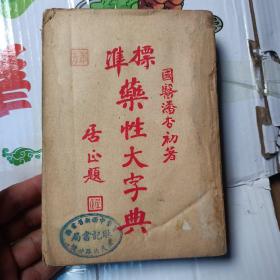 國醫潘杏初著
標準
藥性大字典
居正題
記書局